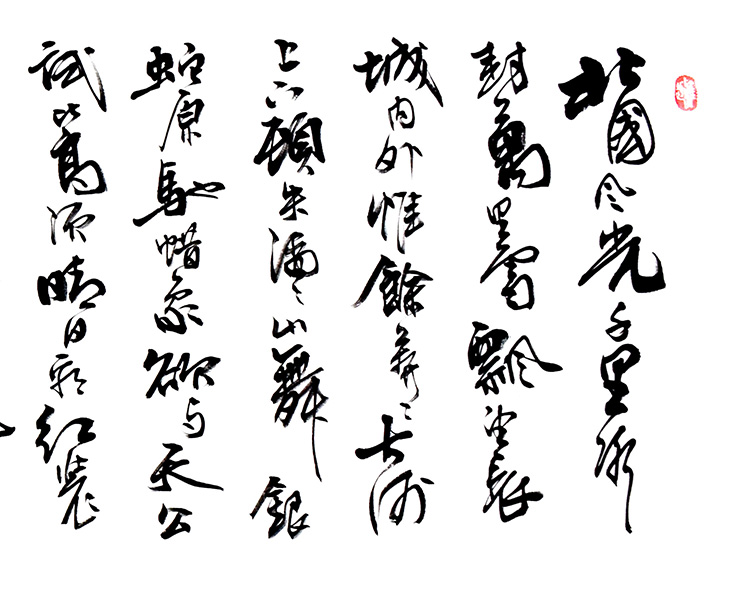 北國风光千里冰
封萬里雪飄望長
城内外惟餘莽々大河
上下頓失滔々山舞銀
蛇原馳蜡象欲与天公
試比高須晴日看红裝